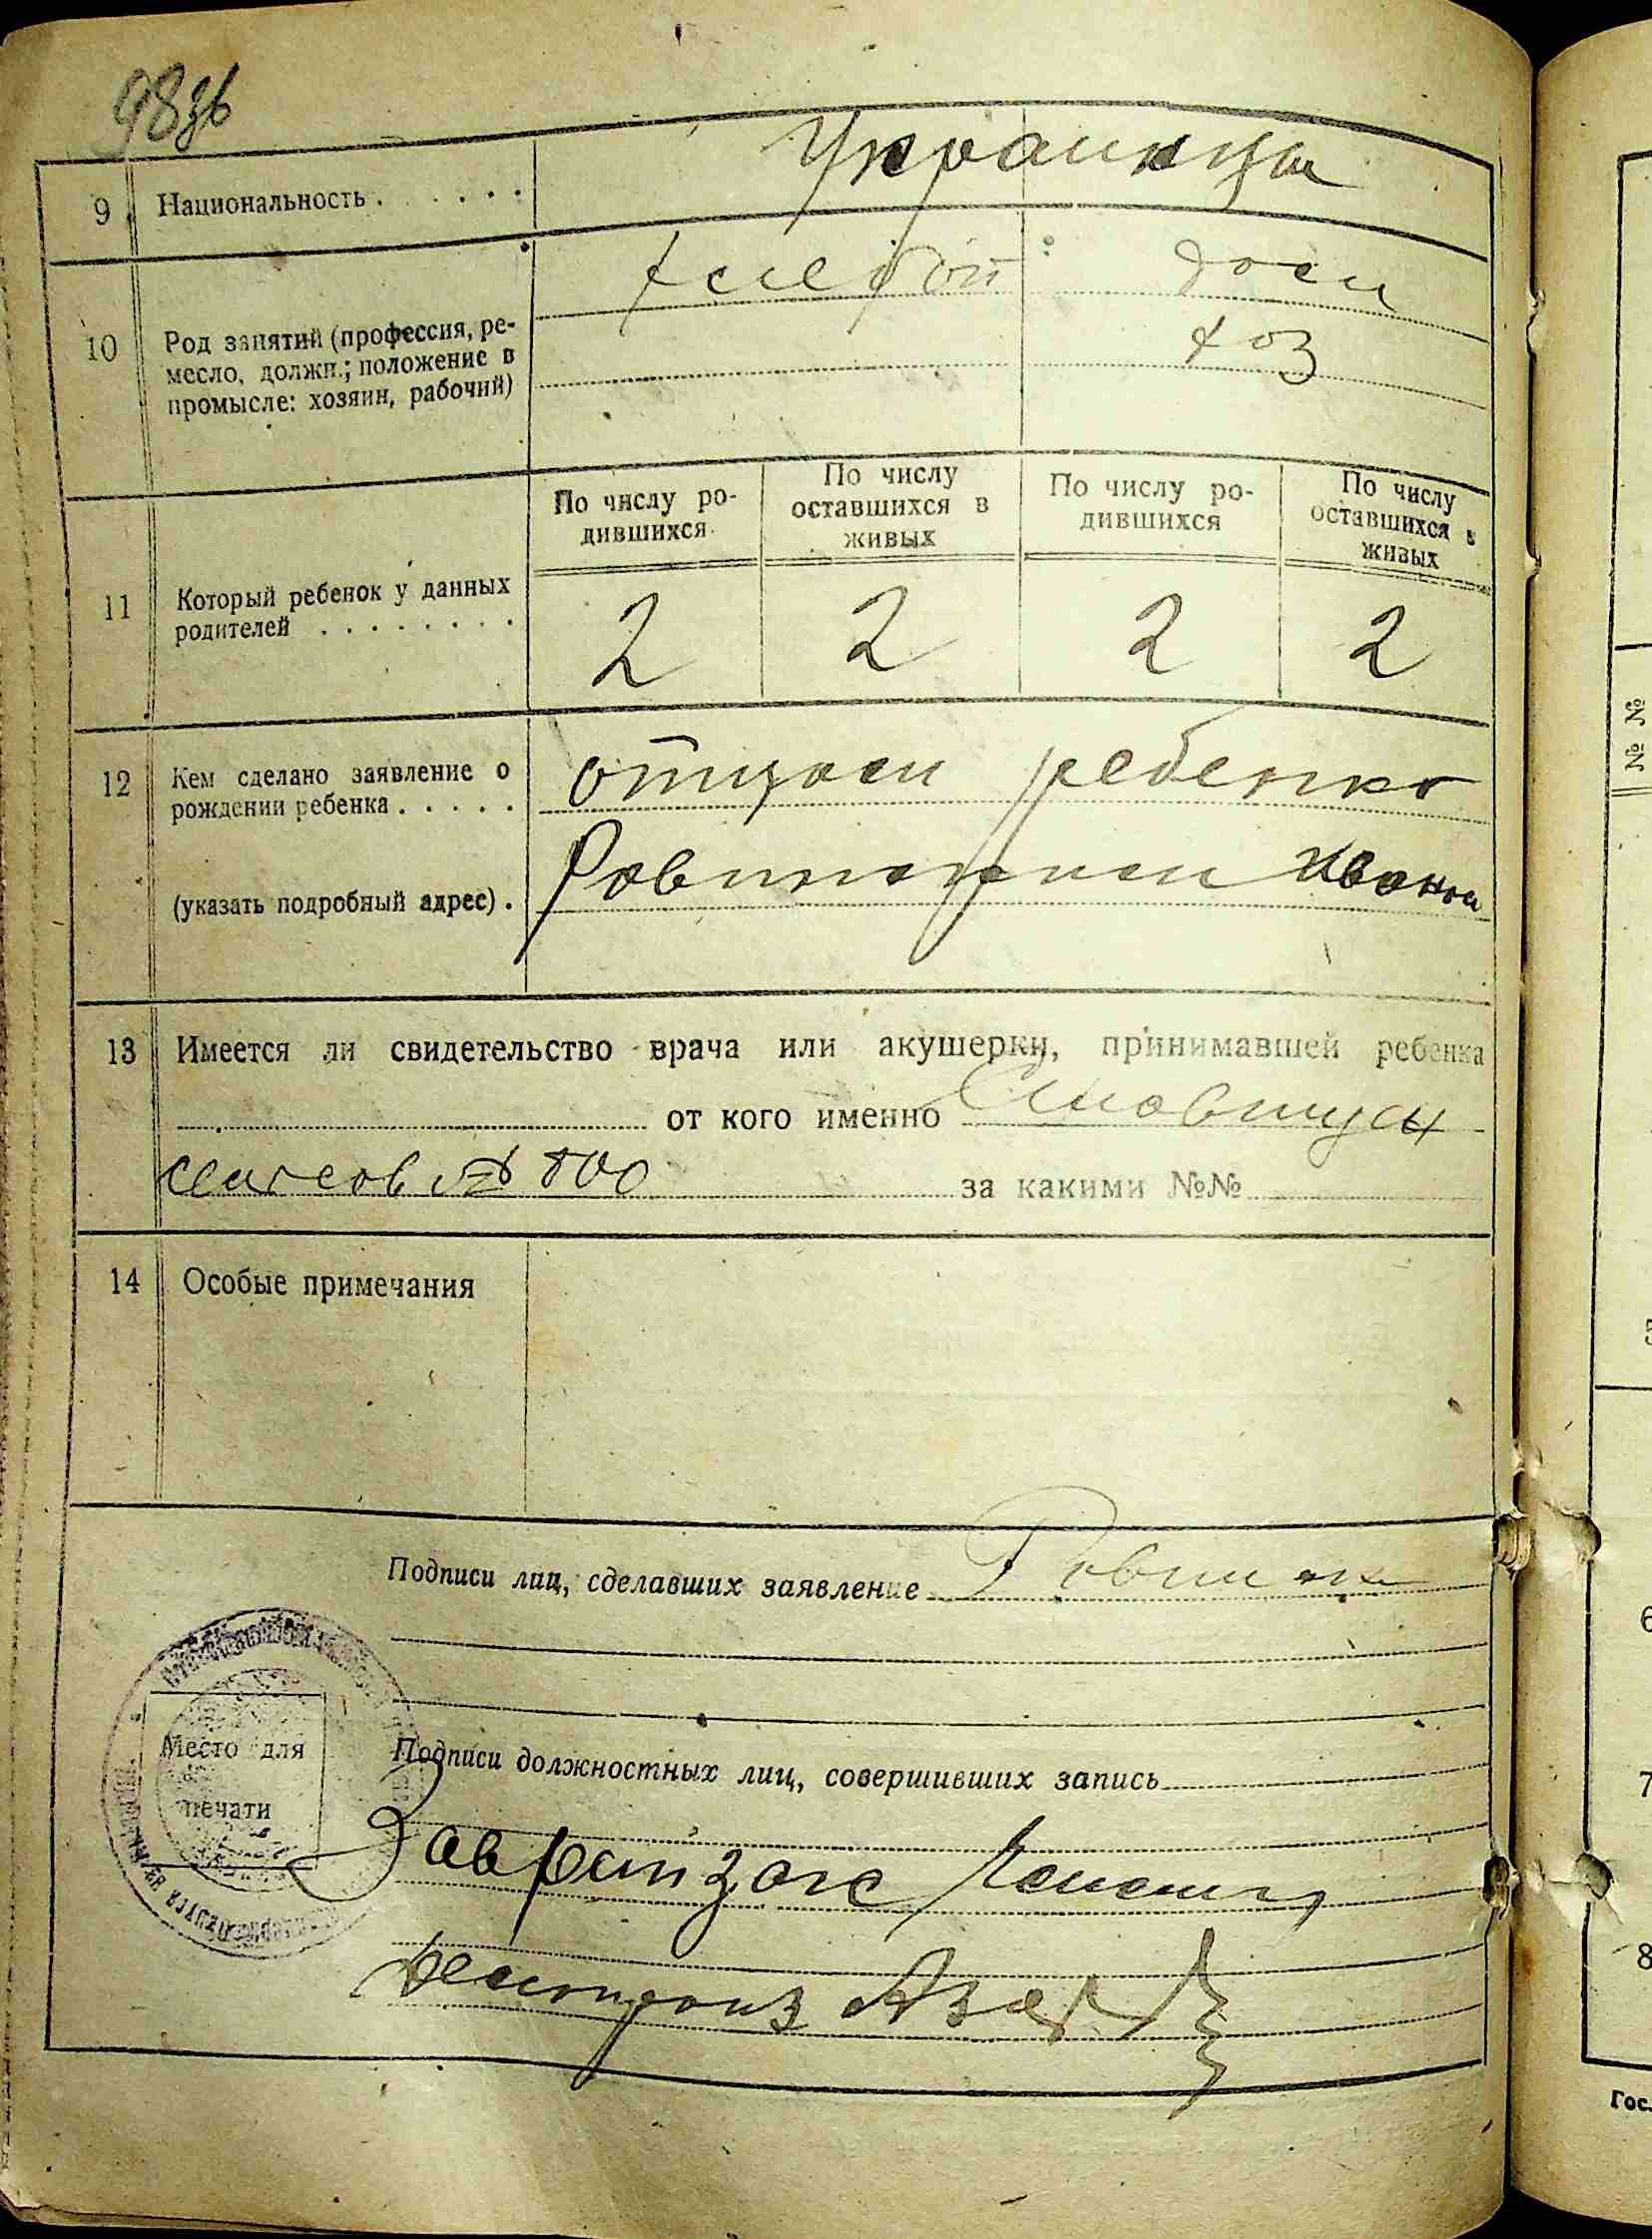 98зв
9 Национальность . . . . . . Украинцы
10 Род занятий (профессия, ре-
месло, должн.; положение в
промысле: хозяин, рабочий)
хлебоп дом
хоз
11 Который ребенок у данных
родителей . . . . . . . .
По числу ро-
дившихся
По числу
оставшихся в
живых
По числу ро-
дившихся
По числу
оставшихся в
живых
2 2 2 2
12 Кем сделано заявление о
рождении ребенка . . . . .
отцом ребенка
(указать подробный адрес) .
Ивана
13 Имеется ли свидетельство врача или акушерки, принимавшей ребенка
от кого именно
№ 800 за какими №№
14 Особые примечания
Подписи лиц, сделавших заявление
Место для
печати
Подписи должностных лиц, совершивших запись
Завратзагс
№ №
6
7
8
Гос.